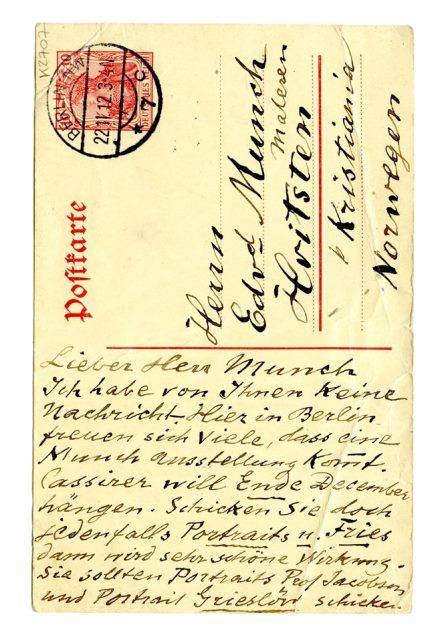 K2707
BERLIN N.W.
22.11.12.3-4N.
* 7 c
10
DEUTSCHES
Postkarte
Herrn
Edvd Munch
Maleren
Hvitsten
p Kristiania
Norwegen
Lieber Herr Munch
Ich habe von Ihnen keine
Nachricht. Hier in Berlin
freuen sich viele, dass eine
Munch Ausstellung komt.
Cassirer will Ende December
hängen. Schicken Sie doch
jedenfalls Portraits u. Fries
dann wird sehr schöne Wirkung.
Sie sollten Portraits Prof Jacobson
und Portrait Grieslör schicken.